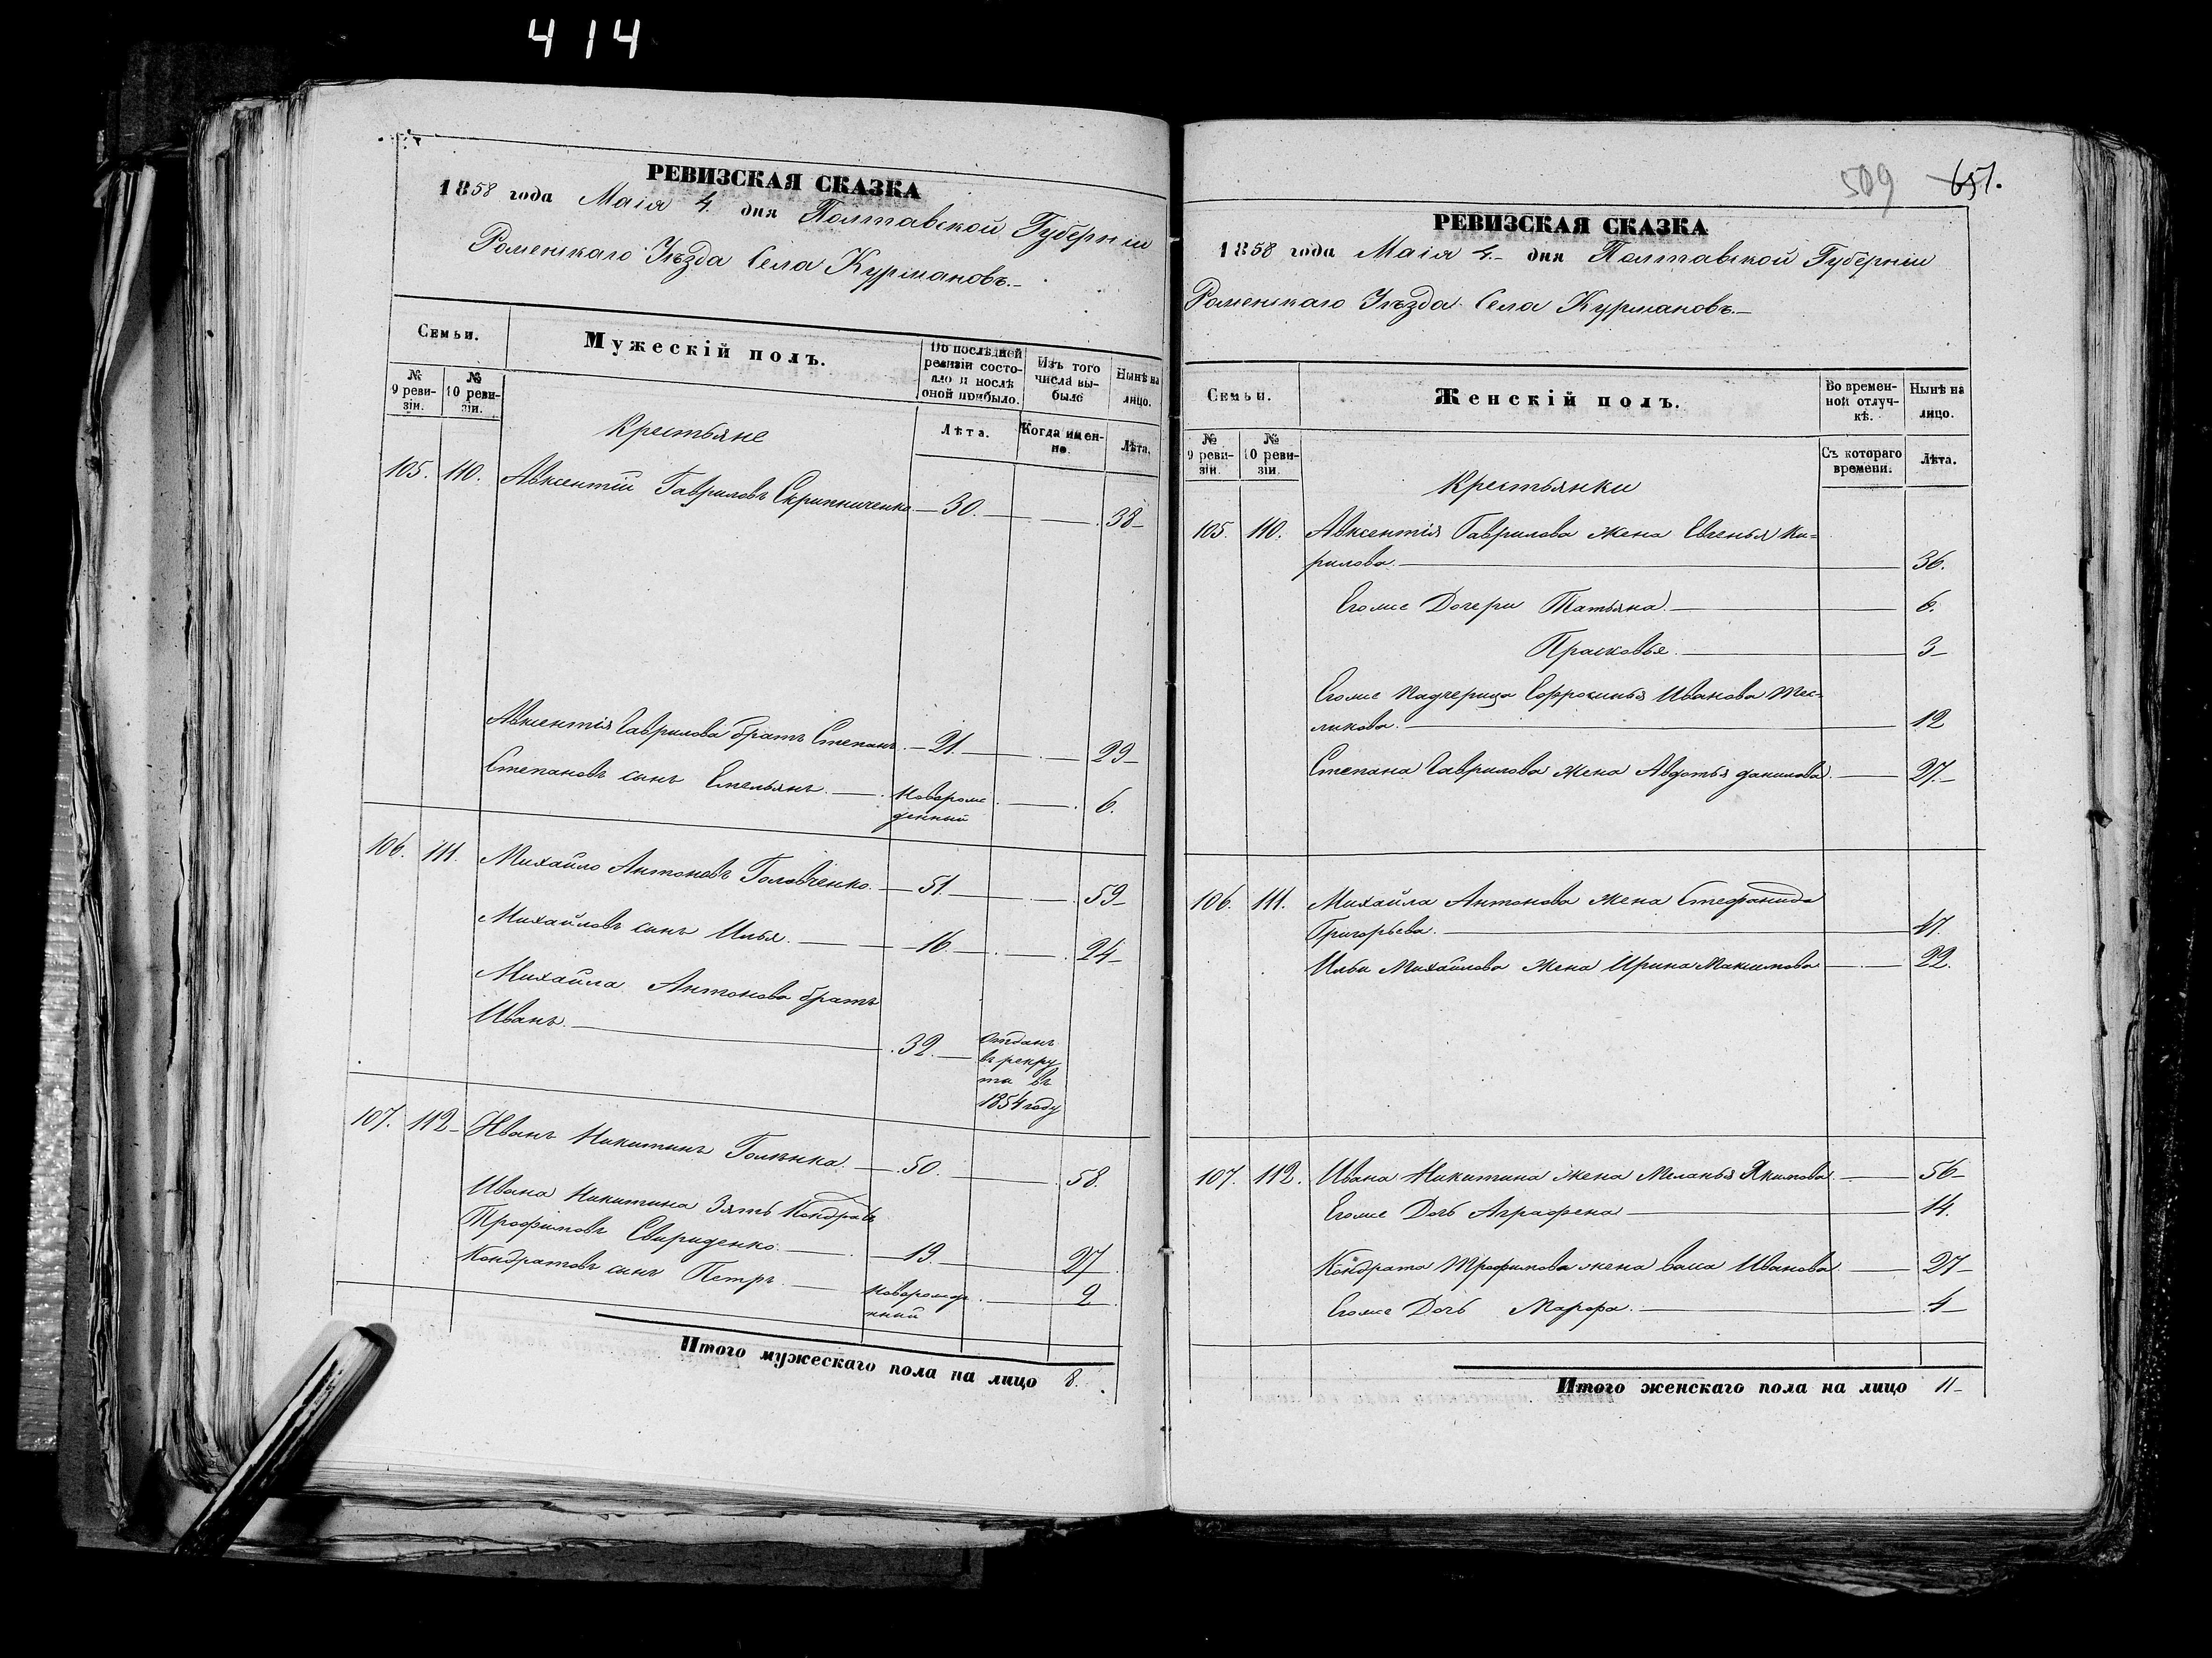 414
РЕВИЗСКАЯ СКАЗКА
1858 года Маія 4. дня Полтавской Губерніи
Роменскаго Уѣзда Села Курмановъ.
Семьи.
Мужескій полъ.
По послѣдней ревизіи состояло и послѣ оной прибыло.
Изъ того числа выбыло
Нынѣ на лицо.
№ 9 ревизіи.
№ 10 ревизіи.
Лѣта.
Когда именно.
Лѣта.
Крестьяне
105. 110. Авксентій Гавриловъ Скрипниченко 30. 38
Авксентія Гаврилова братъ Степанъ 21. 29
Степановъ сынъ Емельянъ. Новорож
денный 6.
106. 111. Михайло Антоновъ Головченко. 51. 59
Михайловъ сынъ Илья. 16. 24
Михайла Антонова братъ
Иванъ. 32. Отданъ
въ рекру
та въ
1854 году
107. 112 Иванъ Никитинъ 50. 58.
Ивана Никитина Зять Кондратъ
Трофимовъ Свириденко. 19. 27
Кондратовъ сынъ Петръ 2
Итого мужескаго пола на лицо 8.
509 651.
РЕВИЗСКАЯ СКАЗКА
1858 года Маія 4. дня Полтавской Губерніи
Роменскаго Уѣзда Села Курмановъ.
Семьи.
Женскій полъ.
Во временной отлучкѣ.
Нынѣ на лицо.
№ 9 ревизіи.
№ 10 ревизіи.
Съ котораго времени.
Лѣта.
Крестьянки
105. 110. Авксентія Гаврилова жена Евгенья Ки=
рилова. 36.
Егоже Дочери Татьяна. 6.
Прасковья. 3
Егоже Падчерица Ефросинья Иванова
12
Степана Гаврилова жена Авдотья Данилова 27.
106. 111. Михайла Антонова жена Стефанида
Григорьева. 47.
Ильи Михайлова жена Ирина Максимова 22.
107. 112. Ивана Никитина жена Меланья Якимова 56
Егоже Дочь Аграфена 14.
Кондрата Трофимова жена Иванова 27
Егоже Дочь Марфа. 4
Итого женскаго пола на лицо 11